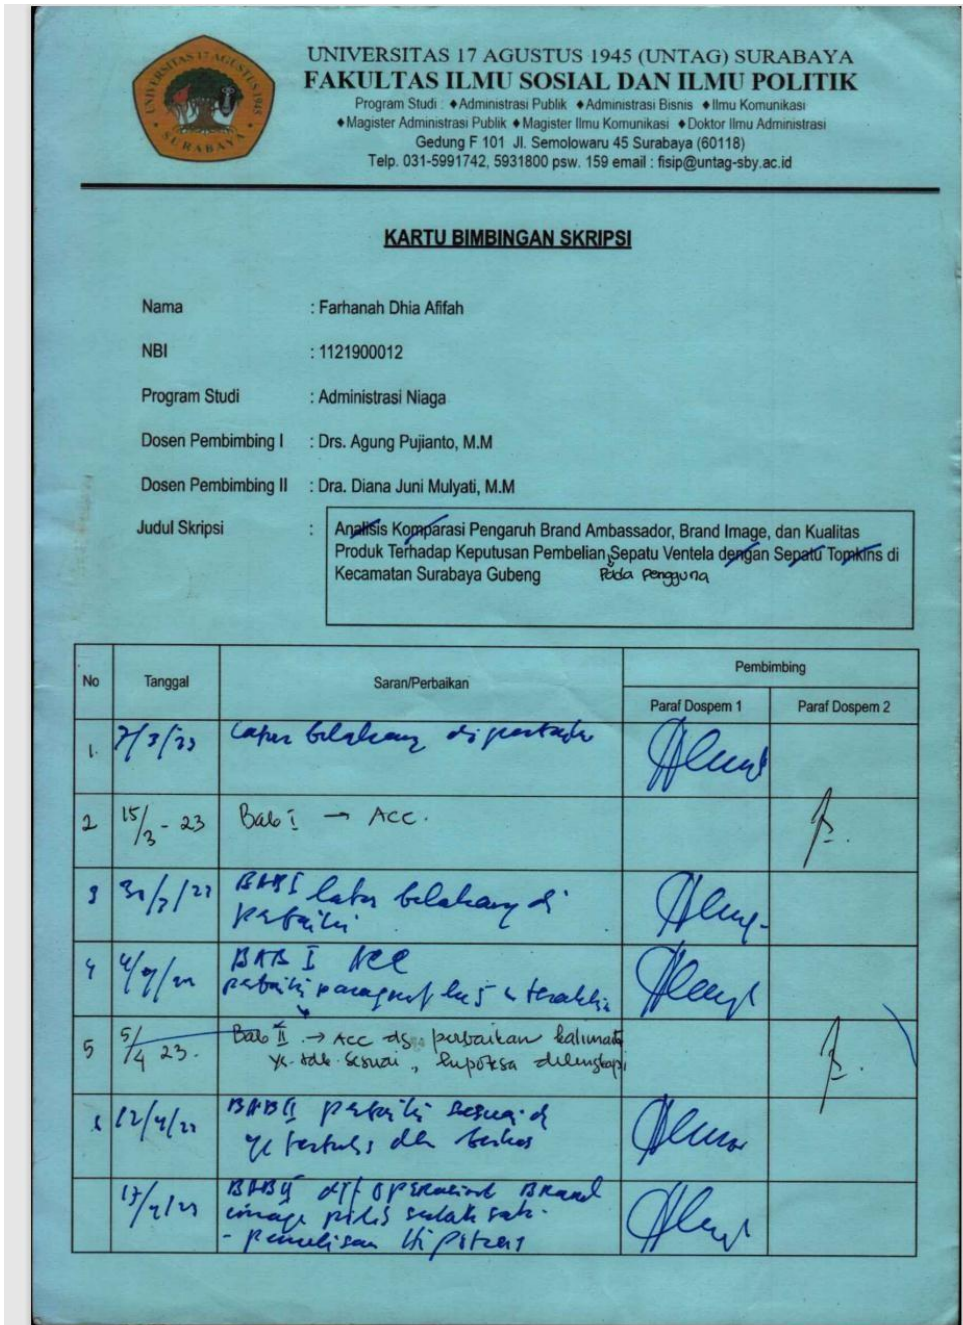 UNIVERSITAS 17 AGUSTUS 1945
SURABAYA
UNIVERSITAS 17 AGUSTUS 1945 (UNTAG) SURABAYA
FAKULTAS ILMU SOSIAL DAN ILMU POLITIK
Program Studi : ◆Administrasi Publik ◆Administrasi Bisnis ◆Ilmu Komunikasi
◆Magister Administrasi Publik ◆Magister Ilmu Komunikasi ◆Doktor Ilmu Administrasi
Gedung F 101 Jl. Semolowaru 45 Surabaya (60118)
Telp. 031-5991742, 5931800 psw. 159 email : fisip@untag-sby.ac.id
KARTU BIMBINGAN SKRIPSI
Nama : Farhanah Dhia Afifah
NBI : 1121900012
Program Studi : Administrasi Niaga
Dosen Pembimbing I : Drs. Agung Pujianto, M.M
Dosen Pembimbing II : Dra. Diana Juni Mulyati, M.M
Judul Skripsi : Analisis Komparasi Pengaruh Brand Ambassador, Brand Image, dan Kualitas
Produk Terhadap Keputusan Pembelian Sepatu Ventela dengan Sepatu Tomkins di
Kecamatan Surabaya Gubeng Pada pengguna
No Tanggal Saran/Perbaikan Pembimbing
Paraf Dospem 1 Paraf Dospem 2
1. 7/3/23 Latar belakang di
2 15/3-23 Bab I → Acc.
3 30/3/23 BAB I latar belakang di
perbaiki
4 BAB I ACC
perbaiki paragraf ke 5 terakhir
5 5/4 23. Bab II → Acc dg perbaikan kalimat
yg tdk sesuai, dilengkapi
12/4/23 BAB II perbaiki sesuai
yg tertulis
17/4/23 BAB operasional Brand
image
- penulisan